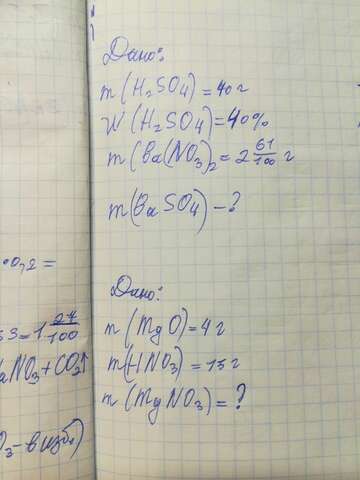 Дано:
m(H₂SO₄)=40г
W(H₂SO₄)=40%
m(Ba(NO₃)₂=2 61/100 г
m(BaSO₄)-?
Дано:
m(MgO)=4г
m(HNO₃)=15г
m(MgNO₃)=?
0,2=
=1 27/100
NO₃+CO₂↑